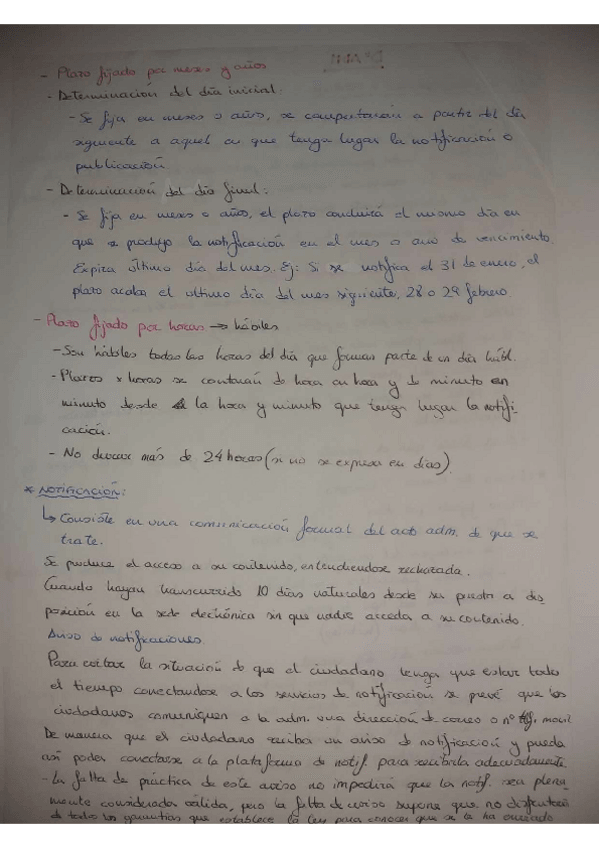 - Plazo fijado por meses y años
- Determinación del día inicial:
- Se fija en meses o años, se computarán a partir del día
siguiente a aquel en que tenga lugar la notificación o
publicación
- Determinación del día final:
- Se fija en meses o años, el plazo concluirá el mismo día en
que se produjo la notificación en el mes o año de vencimiento.
Expira último día del mes. Ej: Si se notifica el 31 de enero, el
plazo acaba el ultimo día del mes siguiente, 28 o 29 febrero.
- Plazo fijado por horas → hábiles
- Son hábiles todas las horas del día que forman parte de un día hábil.
- Plazos x horas se contarán de hora en hora y de minuto en
minuto desde la hora y minuto que tenga lugar la notifi-
cación.
- No durar más de 24 horas (si no se expresa en días)
* NOTIFICACIÓN:
↳ Consiste en una comunicación formal del acto adm. de que se
trate.
Se produce el acceso a su contenido, entendiendose rechazada.
Cuando hayan transcurrido 10 días naturales desde su puesta a dis
posición en la sede electrónica sin que nadie acceda a su contenido.
Aviso de notificaciones.
Para evitar la situación de que el ciudadano tenga que estar todo
el tiempo conectandose a los servicios de notificación se prevé que los
ciudadanos comuniquen a la adm. una dirección de correo o nº tlf. movil
De manera que el ciudadano reciba un aviso de notificación y pueda
así poder conectarse a la plataforma de notif. para recibirla adecuadamente.
- La falta de práctica de este aviso no impedirá que la notif. sea plena
mente considerada válida, pero la falta de aviso supone que no disfrutará
de todas las garantías que establece la ley para conocer que se le ha enviado